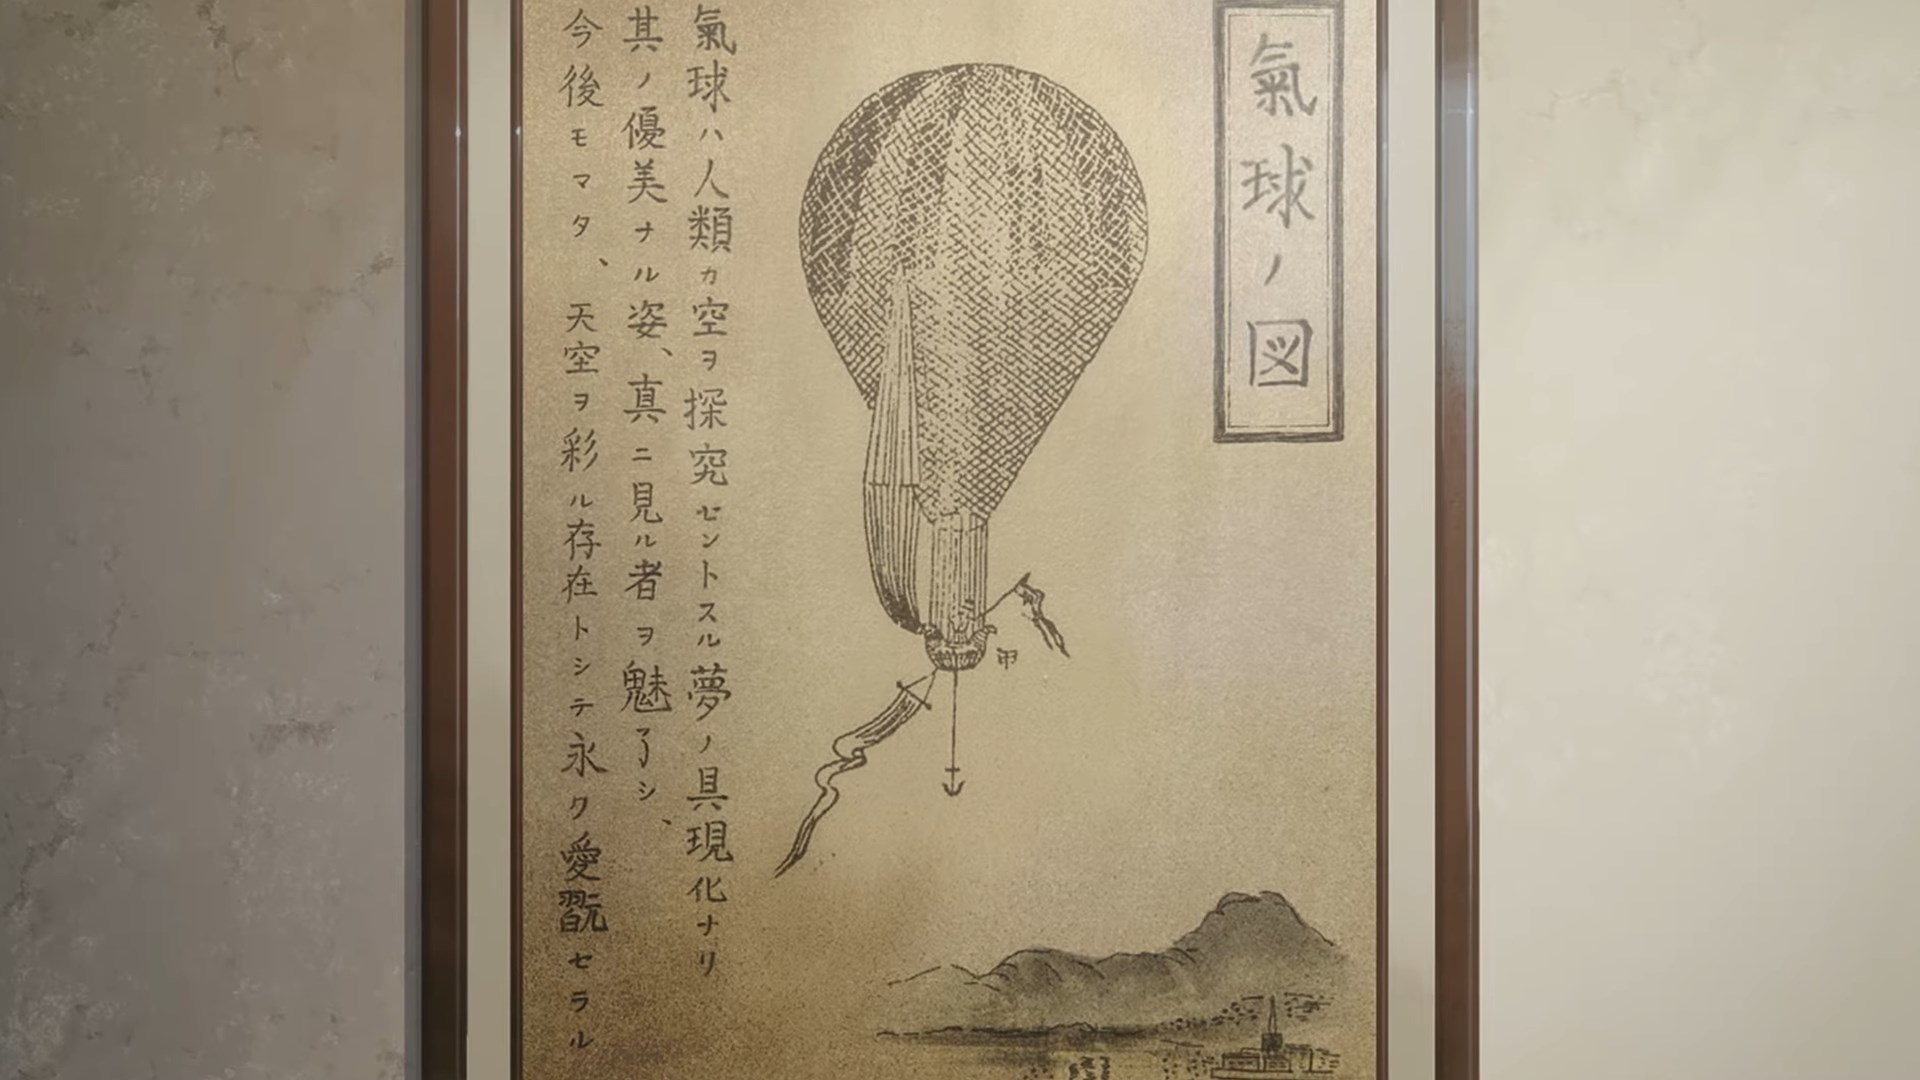 氣球ノ図
氣球ハ人類カ空ヲ探究セントスル夢ノ具現化ナリ
其ノ優美ナル姿、真ニ見ル者ヲ魅了シ、
今後モマタ、天空ヲ彩ル存在トシテ永ク愛翫セラル